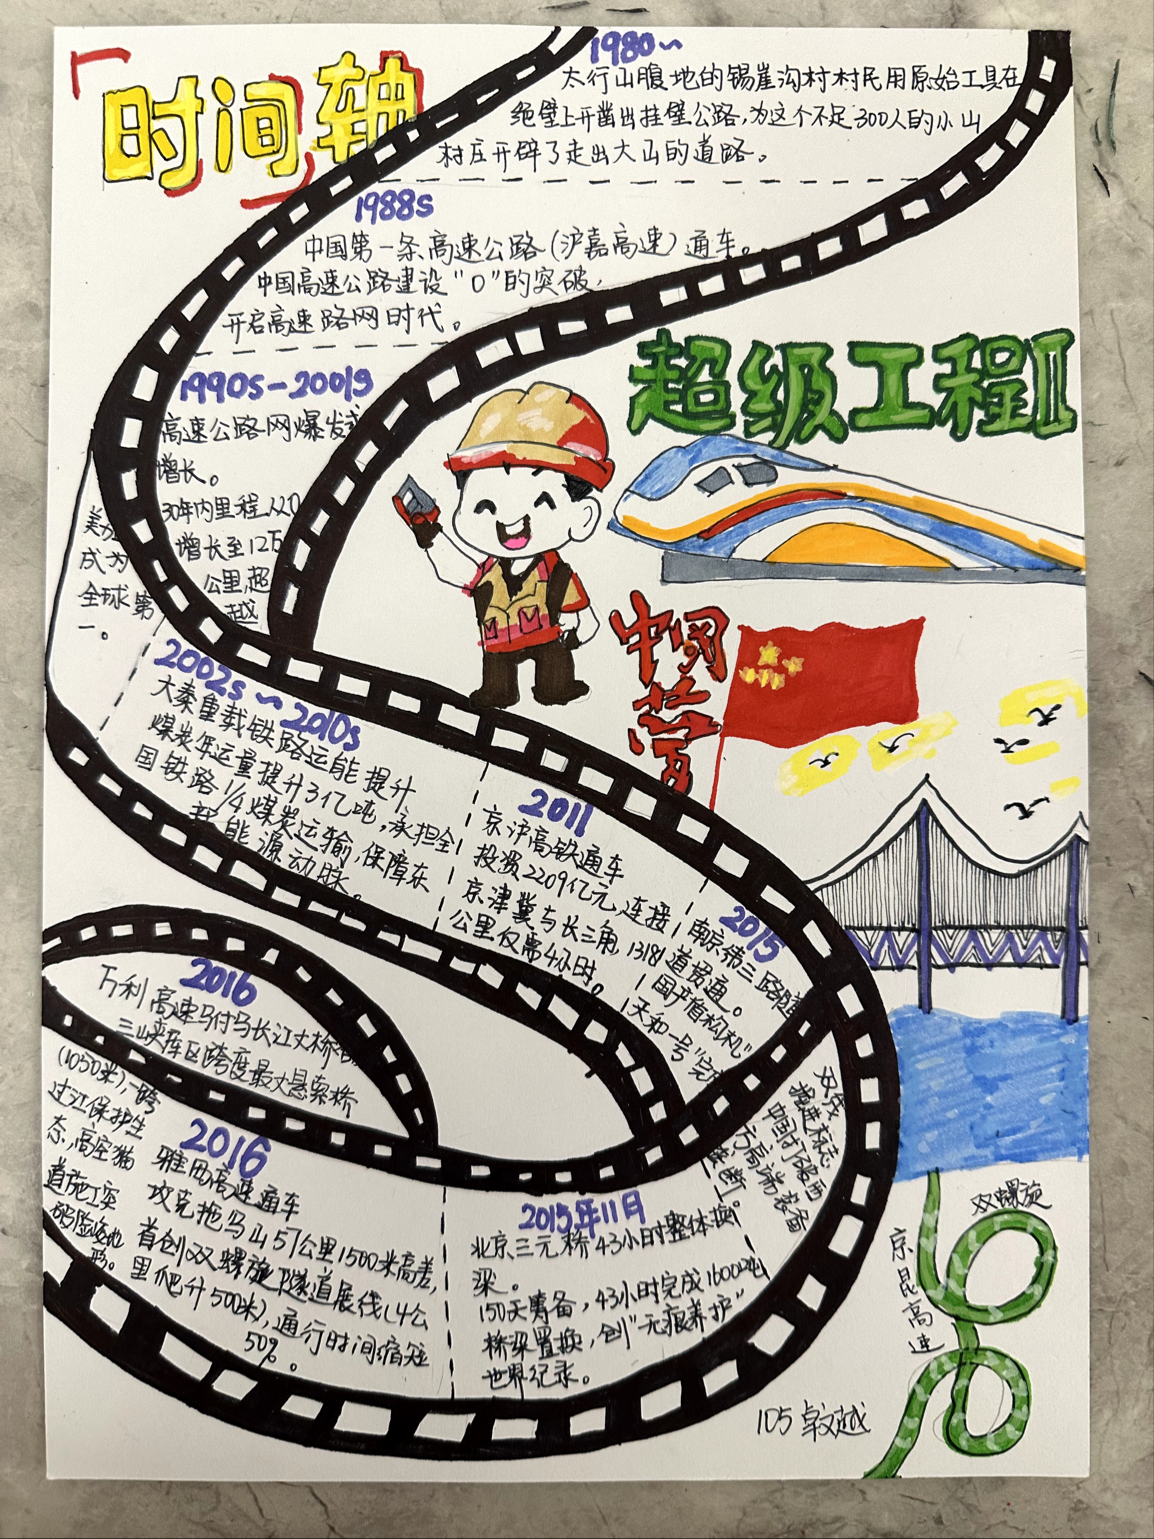 时间轴
1980～
太行山腹地的锡崖沟村村民用原始工具在
绝壁上开凿出挂壁公路，为这个不足300人的小山
村庄开辟了走出大山的道路。
1988s
中国第一条高速公路（沪嘉高速）通车。
中国高速公路建设“0”的突破，
开启高速路网时代。
超级工程II
1990s-2001s
高速公路网爆发式
增长。
30年内里程从0
增长至12万
公里，超
越
美
成为
全球第
一。
中国
2002s～2010s
大秦重载铁路运能提升
煤炭年运量提升3亿吨，承担全
国铁路1/4煤炭运输，保障东
能源动脉。
2011
京沪高铁通车
投资2209亿元，连接
京津冀与长三角，1318
公里仅需4小时。
2015
南京纬三路隧
道贯通。
国产盾构机
“天和一号”完
双线
掘进标志
中国打破西
方高端装备
垄断。
2016
万利高速驸马长江大桥
三峡库区跨度最大悬索桥
（1050米），一跨
过江保护生
态，高空猫
道施工突
破险峻地
形。
2016
雅西高速通车
攻克拖乌山51公里1500米高差，
首创双螺旋隧道展线（4公
里爬升500米），通行时间缩短
50%。
2015年11月
北京三元桥43小时整体换
梁。
150天筹备，43小时完成1600吨
桥梁置换，创“无痕养护”
世界纪录。
双螺旋
京昆高速
105